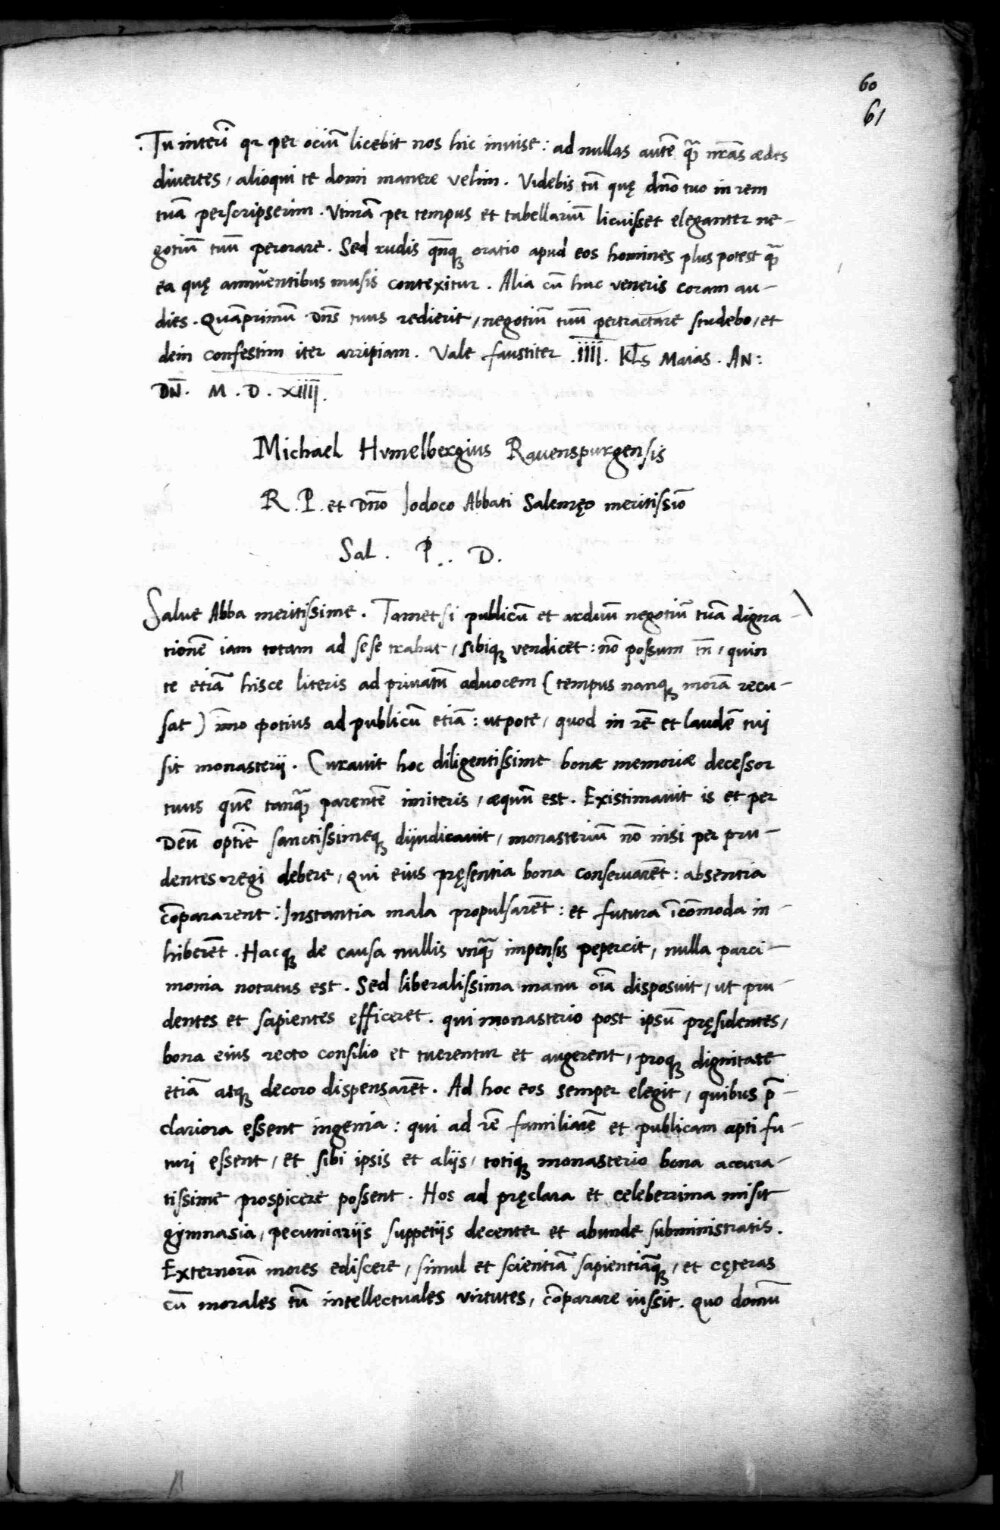 60
61
Tu interĩ qñ per ociũ licebit nos hic inuise: ad nullas autẽ q̃ nrãs ædes
diuertes, alioqui te domi manere velim. Videbis tñ quę dño tuo in rem
tuã perscripserim. Vtinã per tempus et tabellariũ licuisset eleganter ne-
gotiũ tuũ perorare. Sed rudis qñq oratio apud eos homines plus potest q̃
ea quę annuentibus musis contexitur. Alia cũ hac veneris coram au-
dies. Quãprimũ dñs tuus redierit, negotiũ tuũ pertractare studebo, et
dein confestim iter arripiam. Vale faustiter .IIII. Kl̃s Maias. AN:
DÑ. M.D.XIIII.
Michael Hvmelbergius Rauenspurgensis
R.P. et Dño Jodoco Abbati Salemęo meritissiõ
Sal. P.. D.
Salue Abba meritissime. Tametsi publicũ et arduũ negotiũ tuã digna-
tionẽ iam totam ad sese trahat, sibiq vendicet: nõ possum tñ, quin
te etiã hisce literis ad priuatũ aduocem (tempus nanq morã recu-
sat) ĩmo potius ad publicũ etiã: utpote, quod in rẽ et laudẽ tui
sit monasterij. Curauit hoc diligentissime bonæ memoriæ decessor
tuus quẽ tanq̃ parentẽ imiteris, æquũ est. Existimauit is et per
Deũ optĩe sanctissimeq dijudicauit, monasteriũ nõ nisi per pru-
dentes regi debere, qui eius pręsentia bona conseruarẽt: absentia
cõpararent: Instantia mala propulsarẽt: et futura ĩcõmoda in-
hiberẽt. Hacq de causa nullis vnq̃ impensis pepercit, nulla parci-
monia notatus est. Sed liberalissima manu oĩa disposuit, ut pru-
dentes et sapientes efficeret. qui monasterio post ipsũ pręsidentes,
bona eius recto consilio et tuerentur et augerent, proq dignitate
etiã atq decoro dispensarẽt. Ad hoc eos semper elegit, quibus p̃-
clariora essent ingenia: qui ad rẽ familiarẽ et publicam apti fu-
turi essent, et sibi ipsis et alijs, totiq monasterio bona accura-
tissime prospicere possent. Hos ad pręclara et celeberrima misit
gymnasia, pecuniarijs suppetijs decenter et abunde subministratis.
Externorũ mores ediscere, simul et scientiã sapientiãq, et cęteras
cũ morales tũ intellectuales virtutes, cõparare iussit. quo domũ